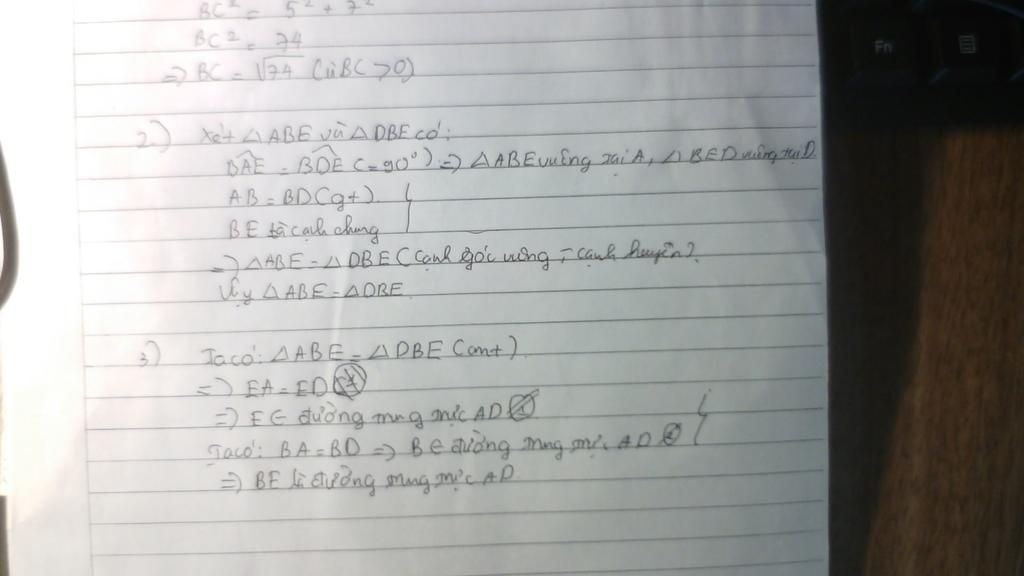 BC² = 5² + 7²
BC² = 74
=> BC = √74 (vì BC > 0)
2) Xét △ABE và △DBE có:
BAE = BDE (= 90°) => △ABE vuông tại A, △BED vuông tại D
AB = BD (gt)
BE là cạnh chung
=> △ABE = △DBE (cạnh góc vuông - cạnh huyền)
Vậy △ABE = △DBE
3) Ta có: △ABE = △DBE (cmt)
=> EA = ED
=> E ∈ đường trung trực AD
Ta có: BA = BD => B ∈ đường trung trực AD
=> BE là đường trung trực AD
Fn